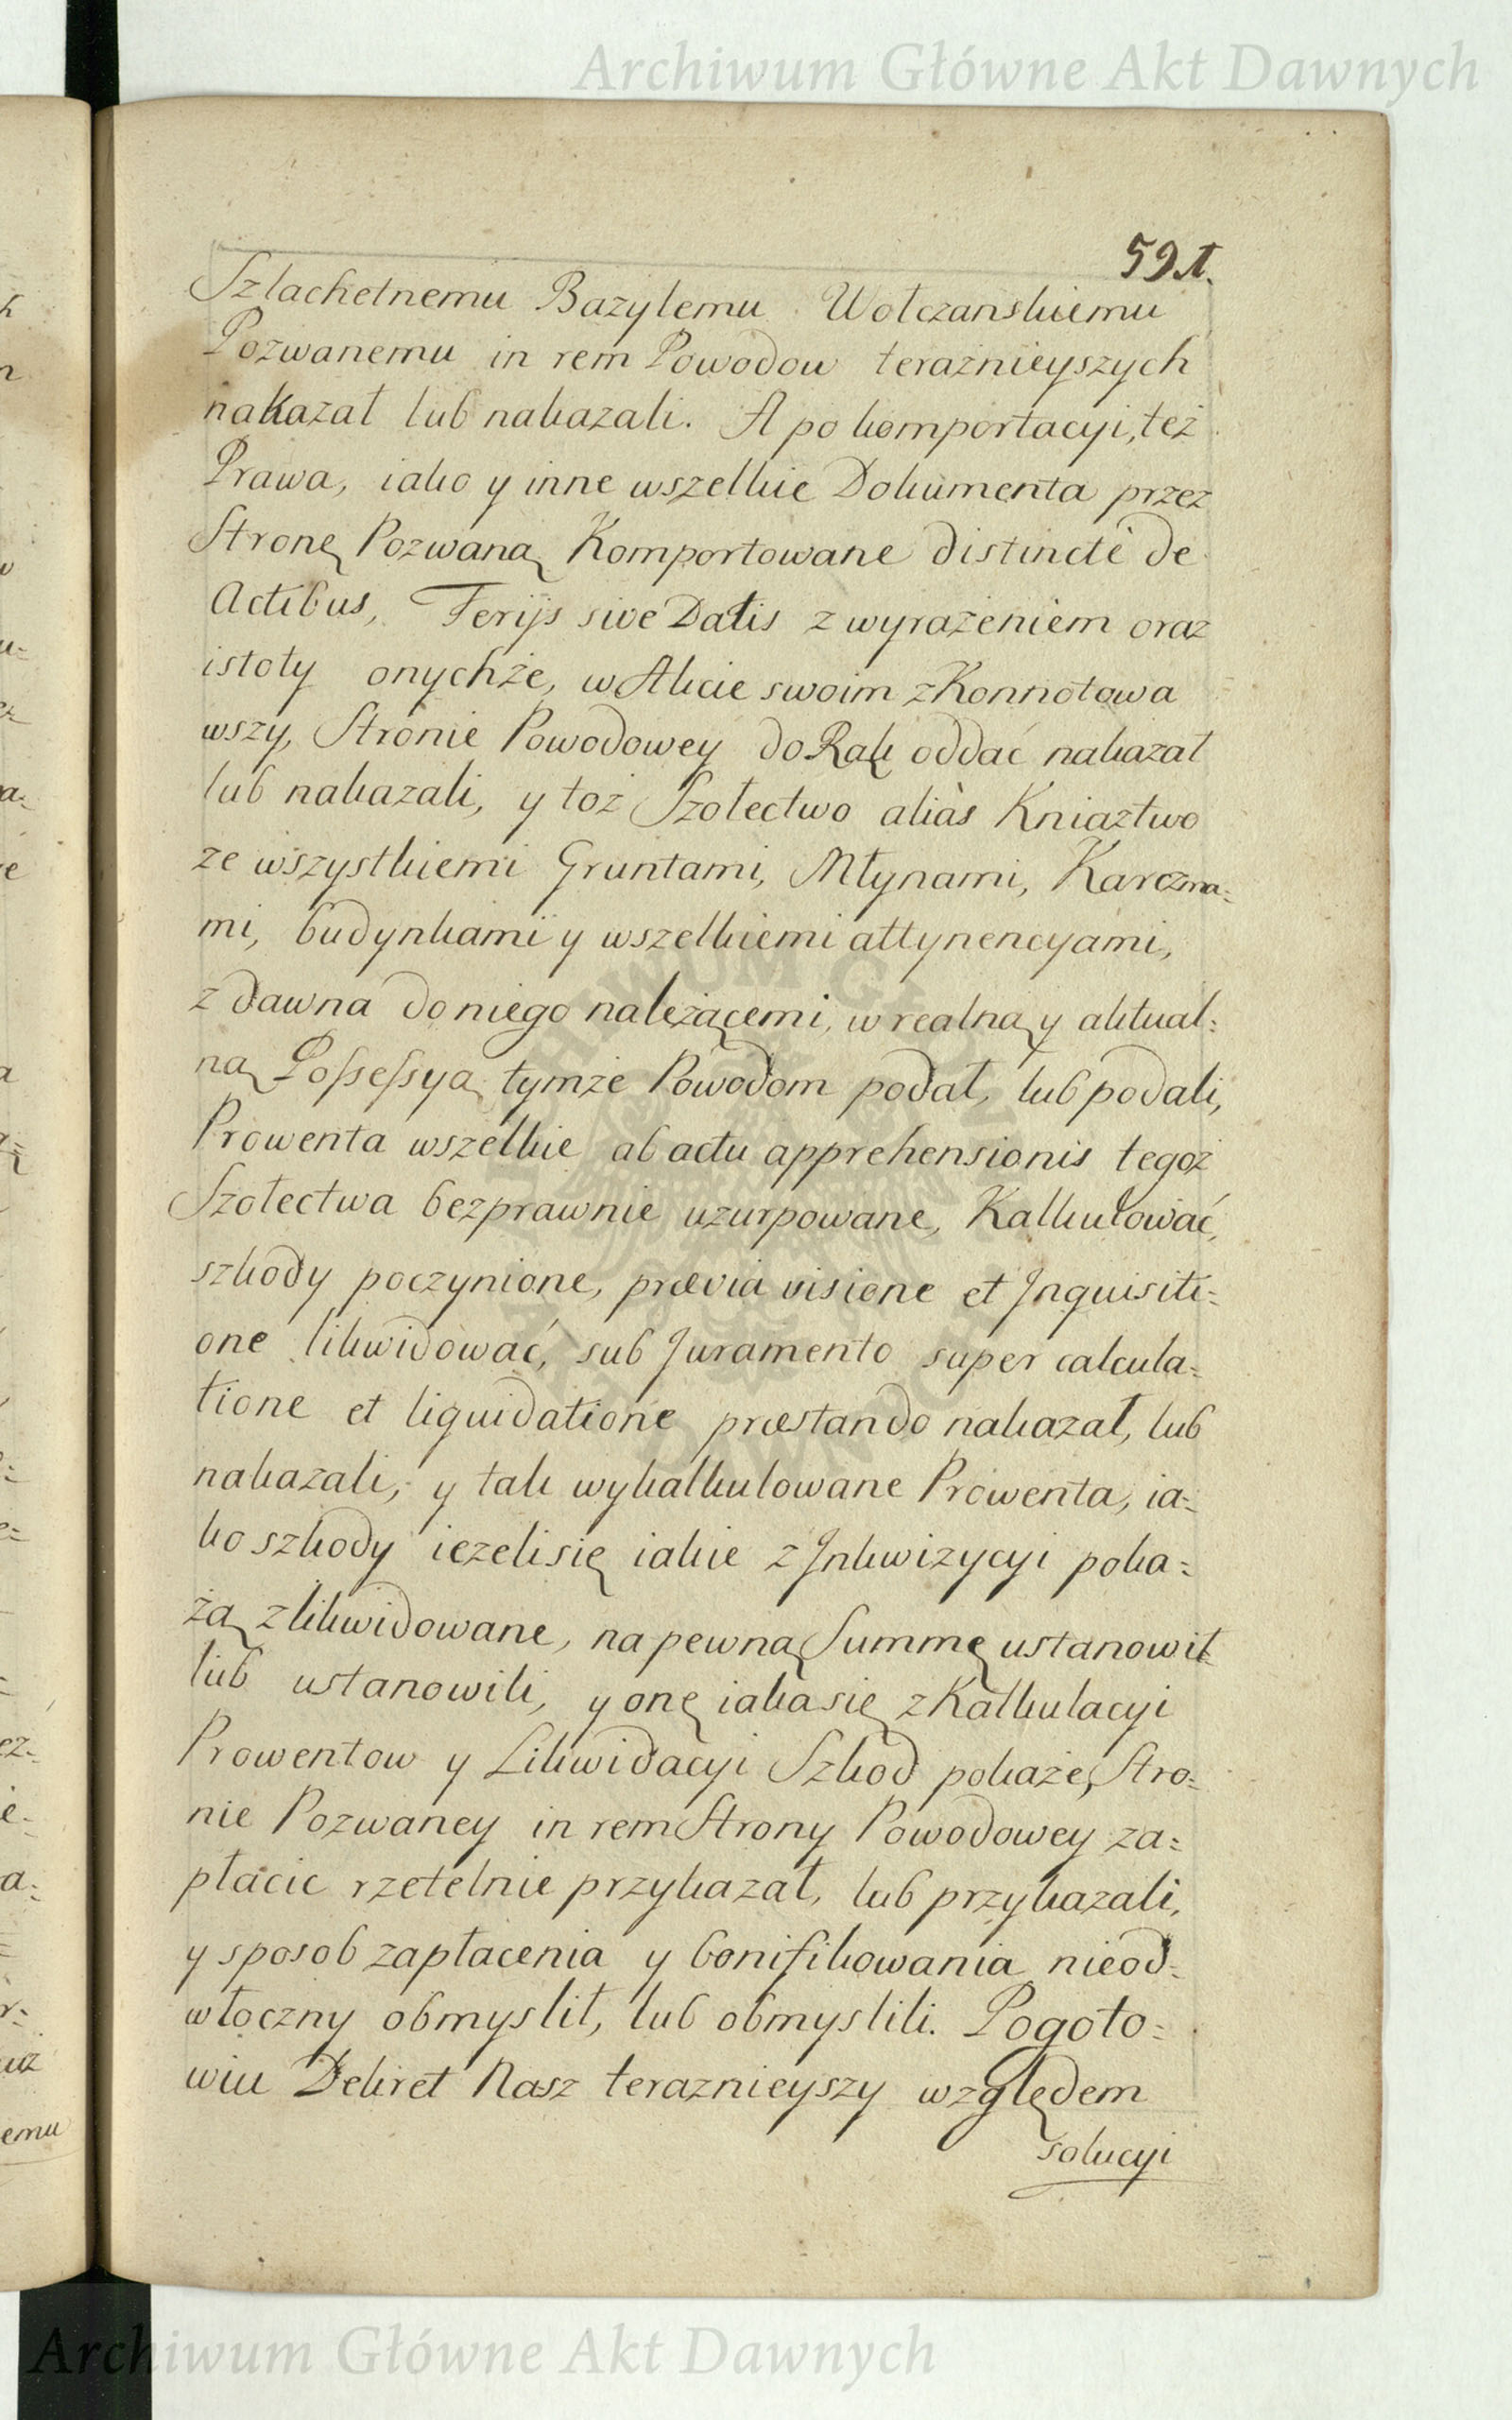 Archiwum Główne Akt Dawnych
591.
Szlachetnemu Bazylemu Wołczanskiemu
Pozwanemu in rem Powodow teraźnieyszych
nakazał lub nakazali. A po komportacyi, też
Prawa, iako y inne wszelkie Dokumenta przez
Stronę Pozwaną Komportowane distinctè de
Actibus, Ferijs sive Datis z wyrażeniem oraz
istoty onychże, w Akcie swoim zKonnotowa
wszy, Stronie Powodowey do Rąk oddać nakazał
lub nakazali, y toż Szołectwo aliàs Kniaztwo
ze wszystkiemi Gruntami, Młynami, Karczma-
mi, budynkami y wszelkiemi attynencyami,
z dawna do niego należącemi, w realną y aktual-
ną Possessyą tymże Powodom podał, lub podali,
Prowenta wszelkie ab actu apprehensionis tegoż
Szołectwa bezprawnie uzurpowane, Kalkulować,
szkody poczynione, prævia visione et Inquisiti-
one likwidować, sub Juramento super calcula-
tione et liquidatione præstando nakazał, lub
nakazali, y tak wykalkulowane Prowenta, ia-
ko szkody ieżeli się iakie z Inkwizycyi poka-
żą zlikwidowane, na pewną Summę ustanowił
lub ustanowili, y onę iaka się z Kalkulacyi
Prowentow y Likwidacyi Szkod pokaże, Stro-
nie Pozwaney in rem Strony Powodowey za-
płacic rzetelnie przykazał, lub przykazali,
y sposob zapłacenia y bonifikowania nieod-
włoczny obmyslił, lub obmyslili. Pogoto-
wiu Dekret Nasz teraznieyszy względem
solucyi
Archiwum Główne Akt Dawnych